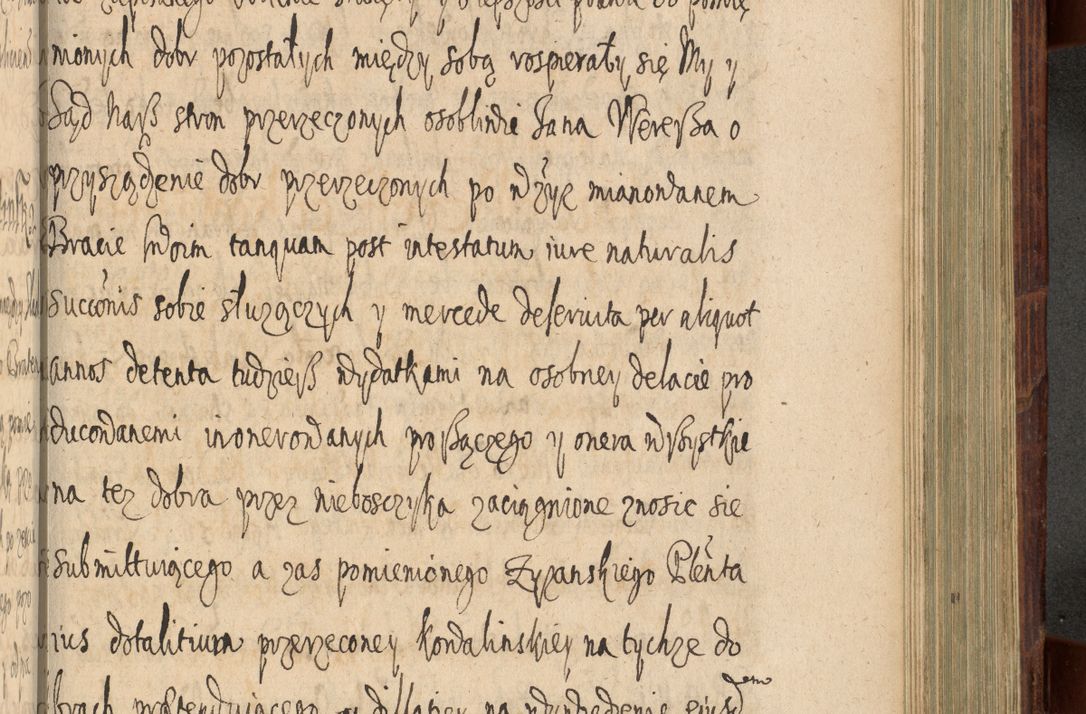 nionych dobr pozostałych między sobą rospierały się My y
Sąd nasz stron przerzeczonych osobliwie Jana Weresza o
przysządzenie dobr przerzeczonych po wżyż mianowanem
Bracie swoim tanquam post intestatum iure naturalis
succonis sobie służączych y mercede deservita per aliquot
annos detenta tudziesz wydatkami na osobney delacie pro
ducowanemi inonerowanych proszączego y onera wszystkie
na tez dobra przez niebosczyka zaciągnione znosic się
submittuiącego a zas pomienionego Zyzanskiego Plenta
rius dotalitium przerzeconey Kowalinskiey na tychze do
brach